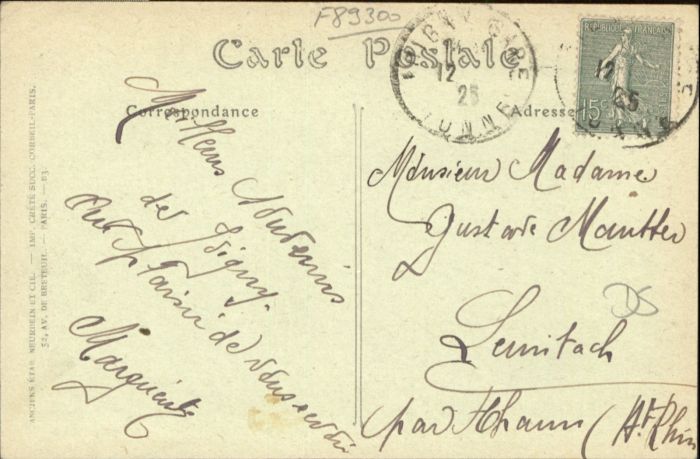 F89300
Carte Postale
Correspondance
Adresse
RÉPUBLIQUE FRANÇAISE
15c
12
25
YONNE
12
25
Meilleurs Souvenirs
de Joigny.
Au plaisir de vous revoir
Marguerite
Monsieur Madame
Gustave
Leimbach
par Thann (Ht Rhin
DS
ANCIENS ÉTAB. NEURDEIN ET CIE. — IMP. CRÉTÉ SUCC. CORBEIL-PARIS.
52, AV. DE BRETEUIL. — PARIS. —